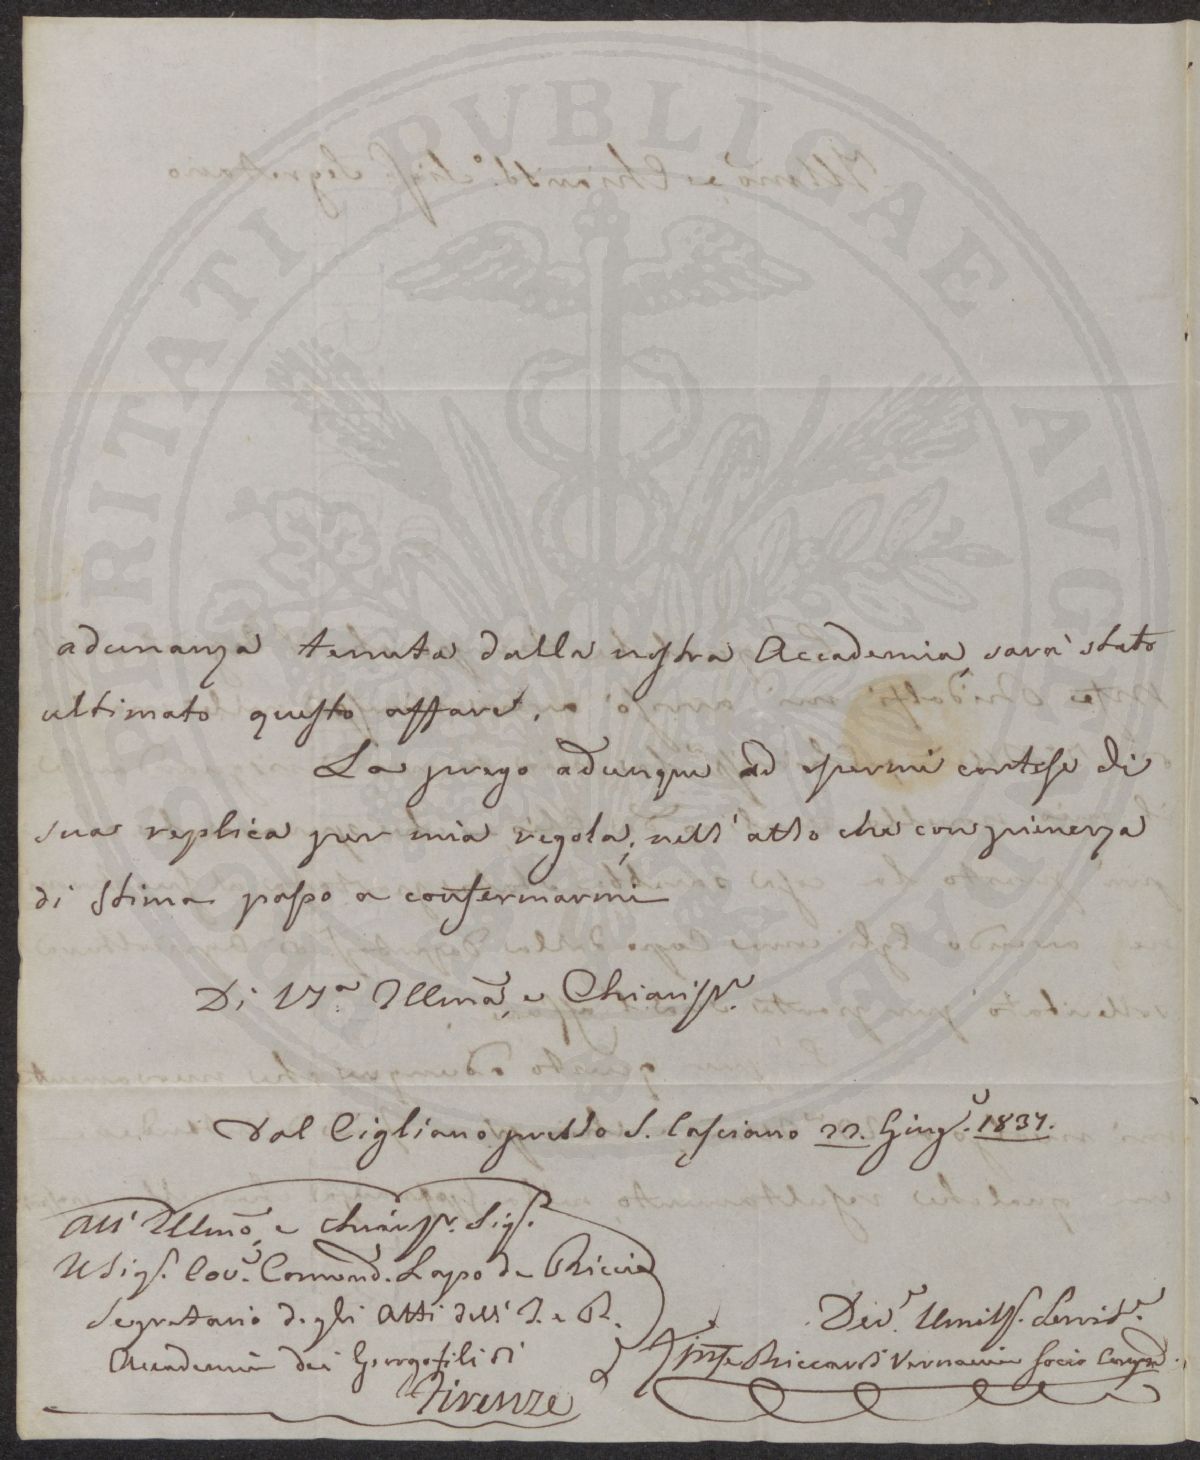 PROSPERITATI PVBLICAE AVGENDAE
adunanza tenuta dalla nostra Accademia, sarà stato
ultimato questo affare.
La prego adunque ad essermi cortese di
sua replica per mia regola, nell'atto che con pienezza
di stima passo a confermarmi
Di V.S. Illma, e Chiariss.
Dal Cigliano presso S. Casciano 22. Giug. 1837.
All' Illmo, e Chiariss. Sig.
Il Sig. Cav. Command. Lapo de Ricci
Segretario degli Atti dell' I. e R.
Accademia dei Georgofili di
Firenze
Dev. Umiliss. Servid.
Riccardi Vernaccia Socio Corrispond.